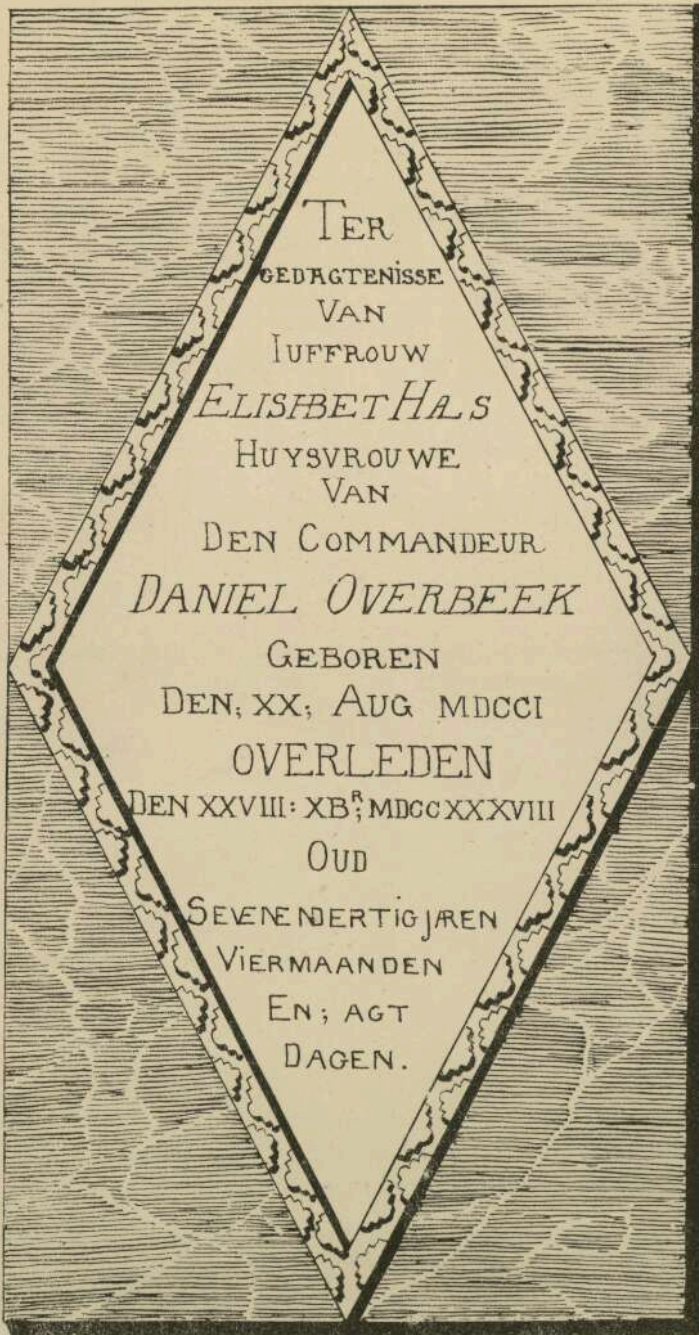 TER
GEDAGTENISSE
VAN
IUFFROUW
ELISABET HALS
HUYSVROUWE
VAN
DEN COMMANDEUR
DANIEL OVERBEEK
GEBOREN
DEN; XX; AUG MDCCI
OVERLEDEN
DEN XXVIII: XBᴿ; MDCCXXXVIII
OUD
SEVENENDERTIG JAREN
VIERMAANDEN
EN; AGT
DAGEN.